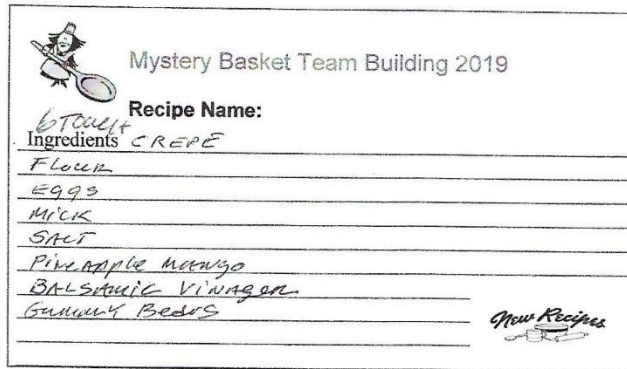 Mystery Basket Team Building 2019
Recipe Name:
6 Touch
Ingredients CREPE
FLOUR
EGGS
MILK
SALT
PineApple MANgo
BALSAMIC VINAGER
Gummy Bears
New Recipes